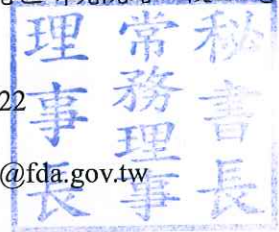 22
@fda.gov.tw
秘書長
常務理事
理事長